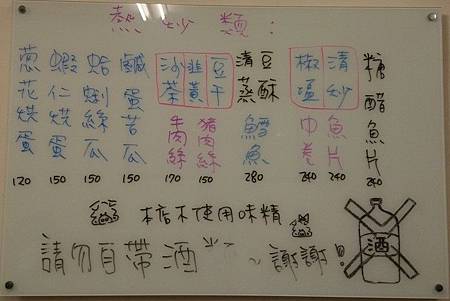 熱炒類:
蔥花烘蛋 120
蝦仁烘蛋 150
蛤蜊絲瓜 150
鹹蛋苦瓜 150
沙茶 牛肉絲 170
韭黃 豆干 豬肉絲 150
清蒸 豆酥 鱈魚 280
椒鹽 中卷 240
清炒 魚片 240
糖醋魚片 240
本店不使用味精
請勿自帶酒 ~謝謝!
酒